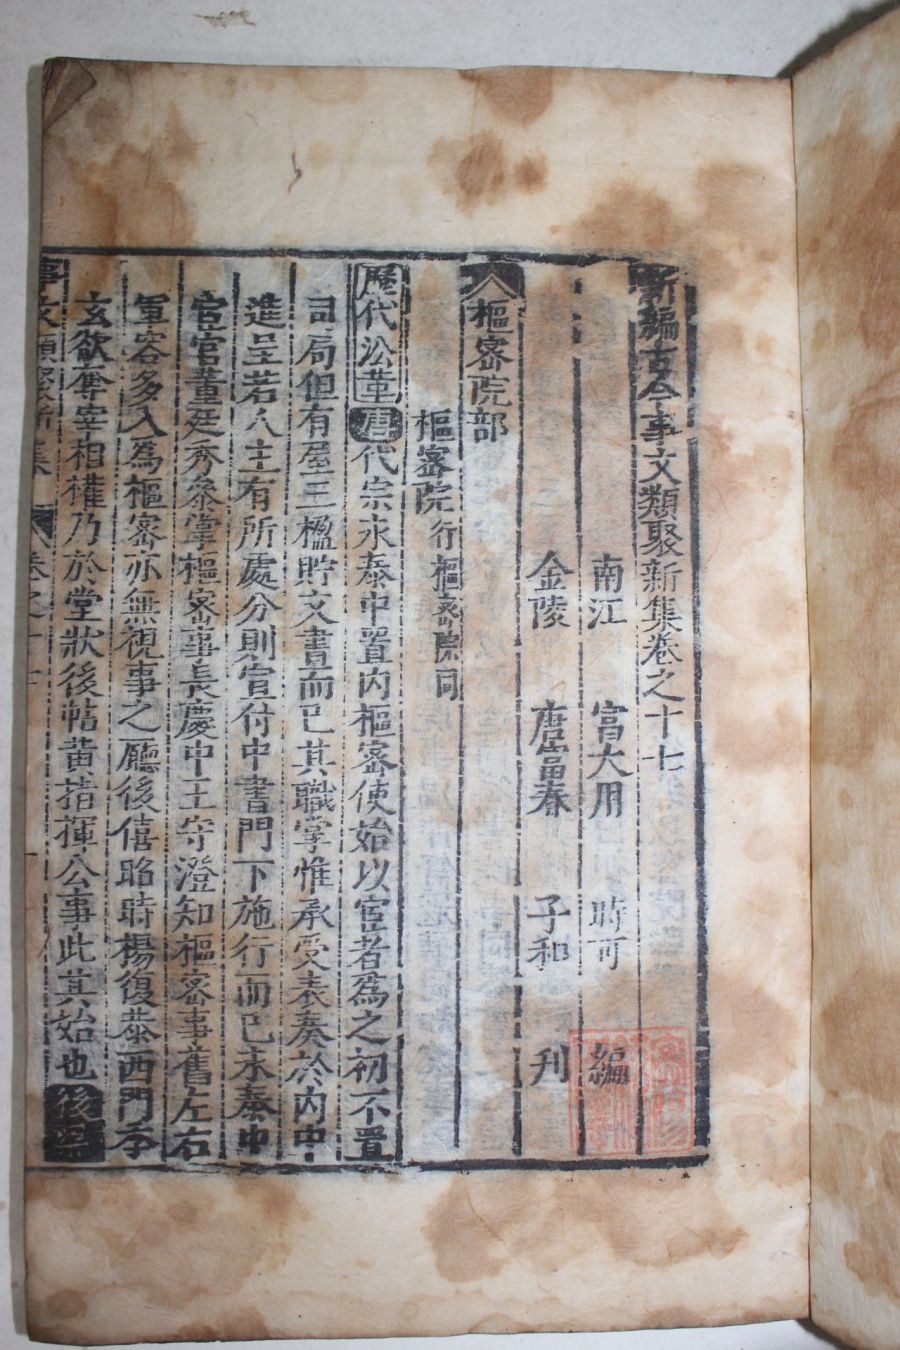 新編古今事文類聚新集卷之十七
南江 富大用 時可 編
金陵 唐富春 子和 刋
樞密院部
樞密院行樞密院同
歷代沿革唐代宗永泰中置内樞密使始以宦者爲之初不置
司局但有屋三楹貯文書而已其職掌惟承受表奏於内中
進呈若人主有所處分則宣付中書門下施行而已永泰中
宦官董廷秀叅掌樞密事長慶中王守澄知樞密事舊左右
軍容多入爲樞密亦無視事之廳後僖昭時楊復恭西門季
玄欲奪宰相權乃於堂狀後帖黄指揮公事此其始也後梁
事文類聚新集 卷之十七